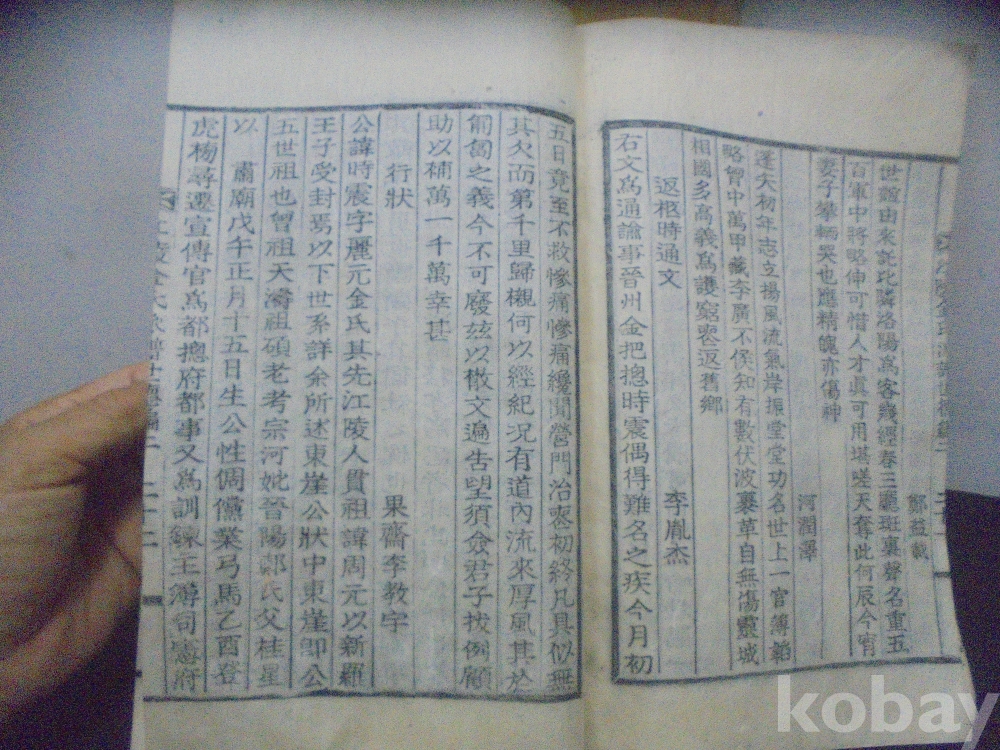 鄭益載
世誼由來託比隣洛陽為客幾經春三疊班裏聲名重五
百軍中將略伸可惜人才眞可用堪嗟天奪此何辰今宵
妻子攀輀哭也應精魄亦傷神
河潤澤
蓬矢初年志立揚風流氣岸振堂堂功名世上一官簿韜
略曾中萬甲藏李廣不侯知有數伏波裹草自無傷靈城
相國多高義為護窮喪返舊鄉
返柩時通文 李胤杰
右文為通諭事晉州金把摠時震偶得難名之疾今月初
五日竟至不救慘痛慘痛纔聞營門治喪初終凡具似無
其欠而第千里歸櫬何以經紀况有道內流來厚風其於
匍匐之義今不可廢玆以檄文遍告望須僉君子拔例顧
助以補萬一千萬幸甚
行狀 果齋李敎宇
公諱時震字麗元金氏其先江陵人貫祖諱周元以新羅
王子受封焉以下世系詳余所述東崖公狀中東崖卽公
五世祖也曾祖天濤祖碩老考宗河妣晉陽鄭氏父桂星
以 肅廟戊午正月十五日生公性倜儻業弓馬乙酉登
虎榜尋遷宣傳官為都摠府都事又為訓鍊主簿司憲府
二十二